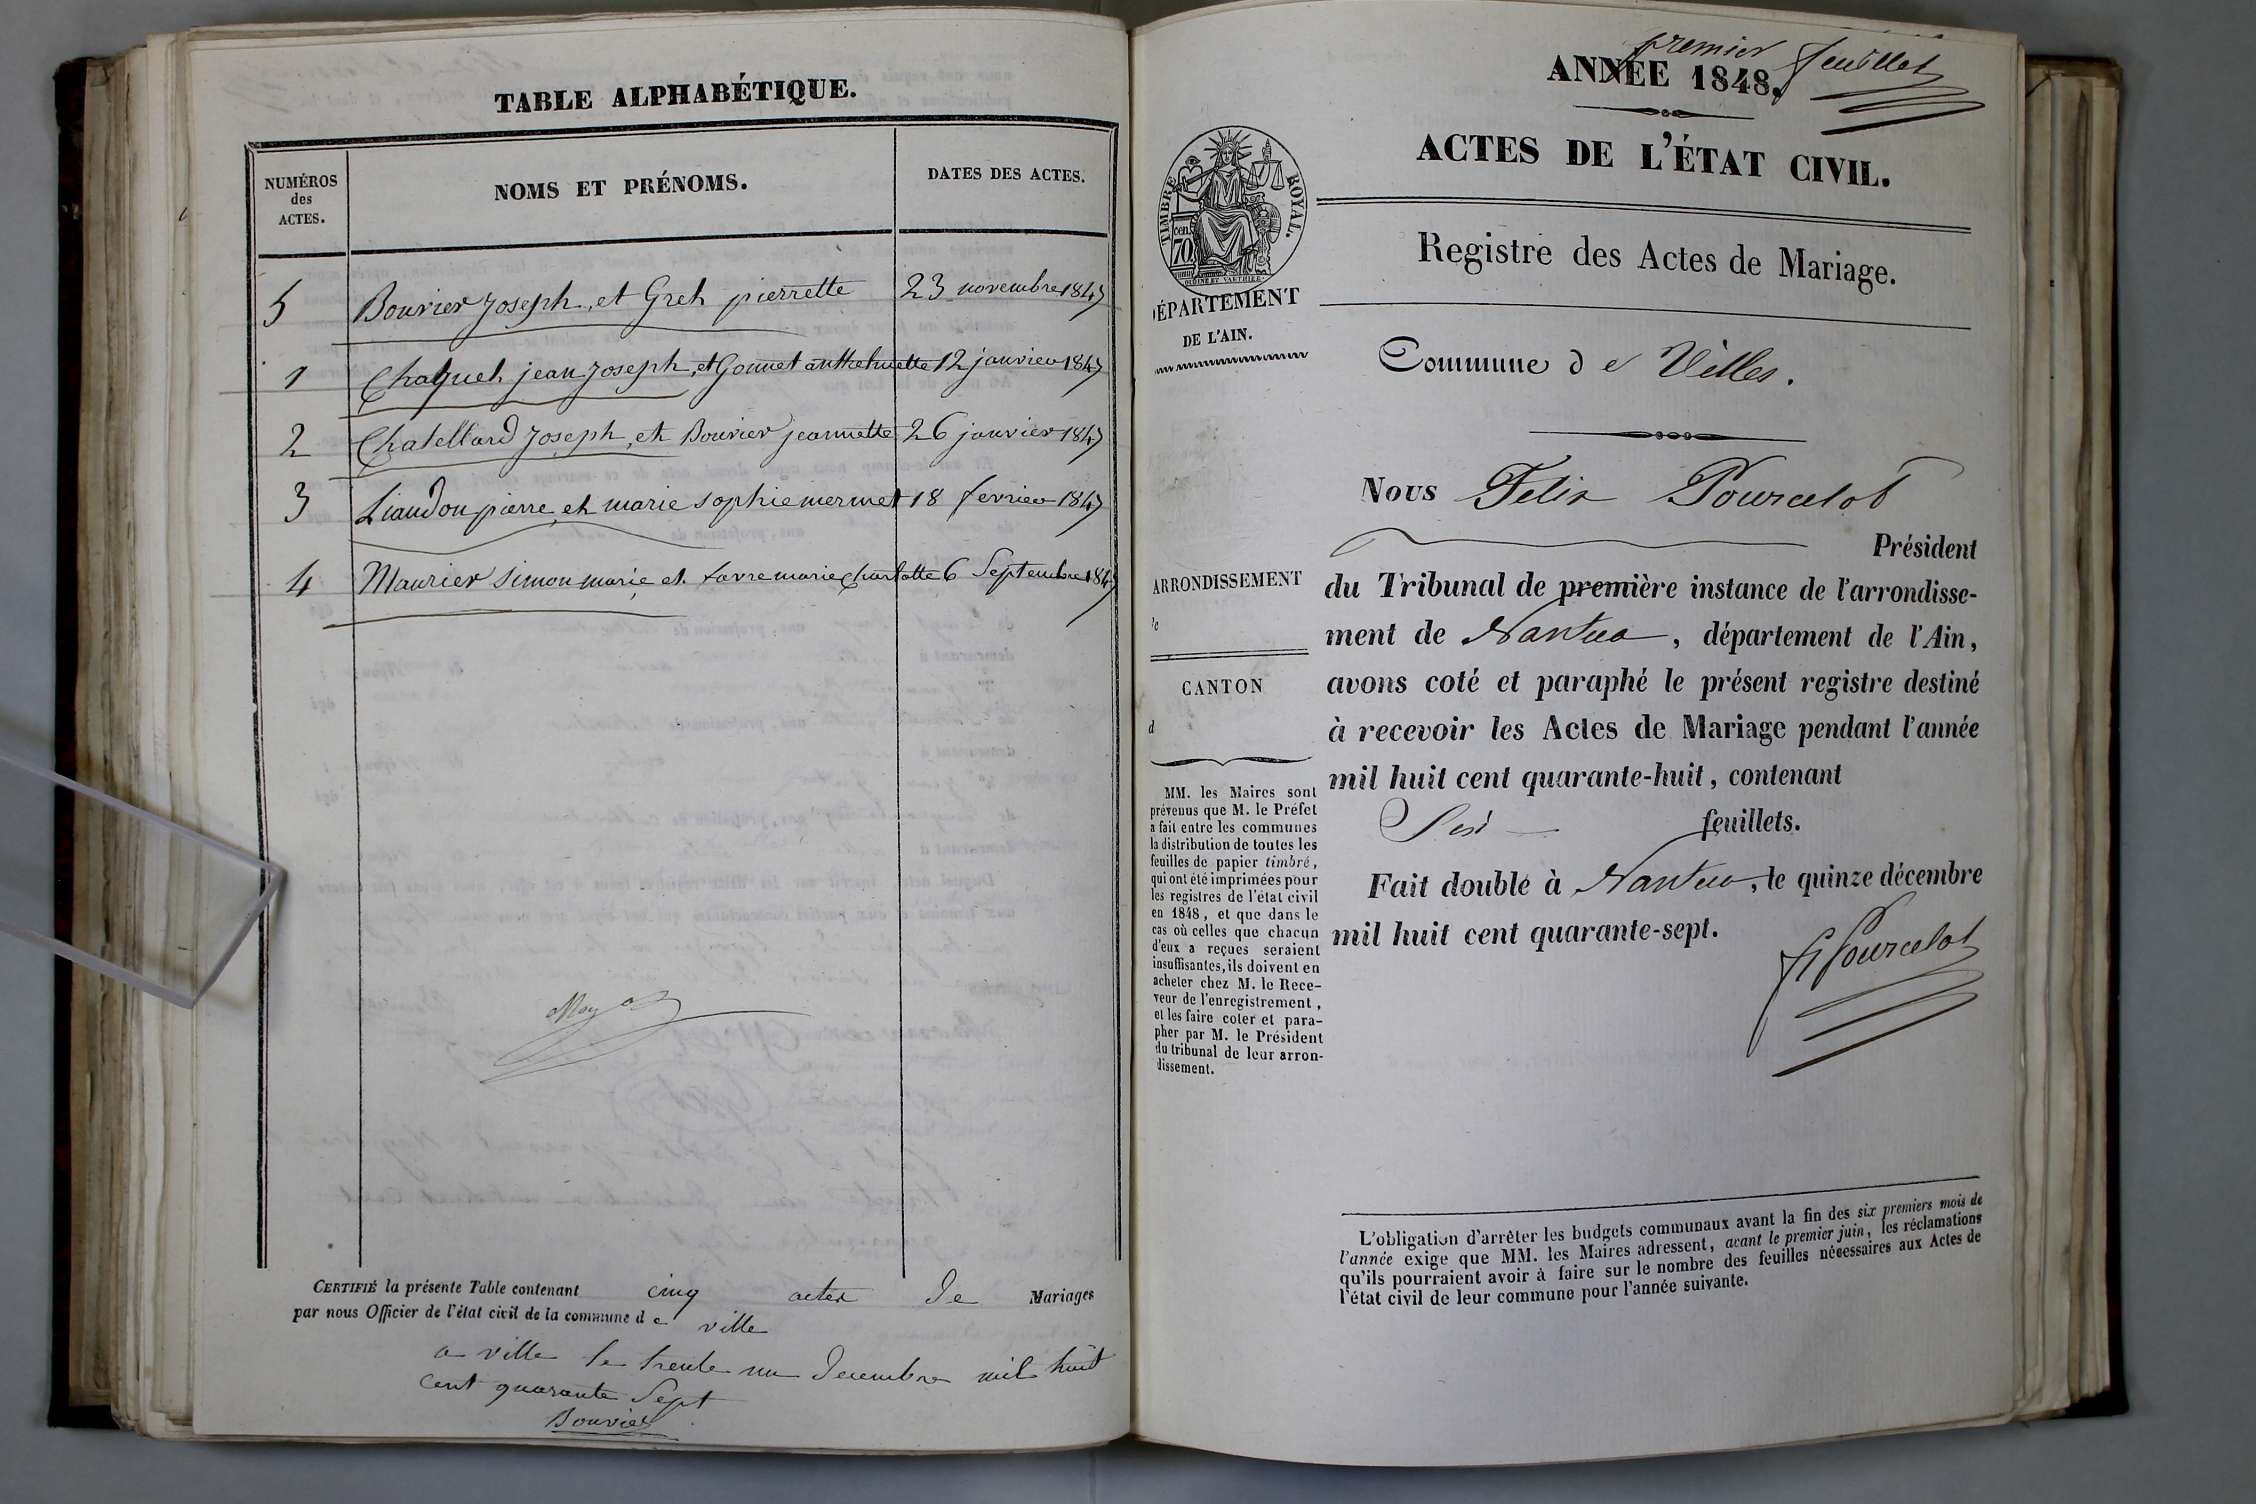 TABLE ALPHABÉTIQUE.
NUMÉROS
des
ACTES.
NOMS ET PRÉNOMS.
DATES DES ACTES.
5 Bouvier Joseph, et Greh pierrette 23 novembre 1847
1 Chaquel jean Joseph, et Gonnet anthelmette 12 janvier 1847
2 Chatellard Joseph, et Bouvier jeannette 26 janvier 1847
3 Liaudon pierre et marie sophie mermet 18 fevrier 1847
4 Maurier Simon marie et favre marie Charlotte 6 Septembre 1847
CERTIFIÉ la présente Table contenant cinq actes de Mariages
par nous Officier de l'état civil de la commune de ville
a ville le trente un decembre mil huit
cent quarante Sept
Bouvier
premier feuillet
ANNÉE 1848.
ACTES DE L'ÉTAT CIVIL.
TIMBRE ROYAL.
cen. 70
OUDINÉ ET VAUTHIER
DÉPARTEMENT
DE L'AIN.
Registre des Actes de Mariage.
Commune de Villes.
Nous Felix Pourcelot
Président
du Tribunal de première instance de l'arrondisse-
ment de Nantua, département de l'Ain,
avons coté et paraphé le présent registre destiné
à recevoir les Actes de Mariage pendant l'année
mil huit cent quarante-huit, contenant
Six feuillets.
Fait double à Nantua, le quinze décembre
mil huit cent quarante-sept.
F Pourcelot
ARRONDISSEMENT
CANTON
d
MM. les Maires sont
prévenus que M. le Préfet
a fait entre les communes
la distribution de toutes les
feuilles de papier timbré,
qui ont été imprimées pour
les registres de l'état civil
en 1848, et que dans le
cas où celles que chacun
d'eux a reçues seraient
insuffisantes, ils doivent en
acheter chez M. le Rece-
veur de l'enregistrement,
et les faire coter et para-
pher par M. le Président
du tribunal de leur arron-
dissement.
L'obligation d'arrêter les budgets communaux avant la fin des six premiers mois de
l'année exige que MM. les Maires adressent, avant le premier juin, les réclamations
qu'ils pourraient avoir à faire sur le nombre des feuilles nécessaires aux Actes de
l'état civil de leur commune pour l'année suivante.